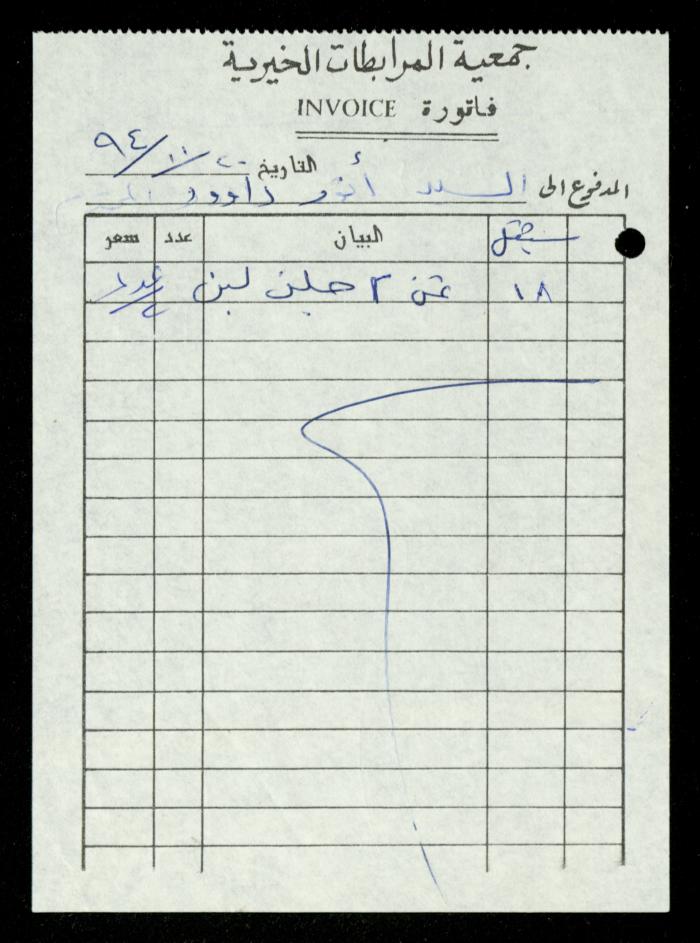 جمعية المرابطات الخيرية
فاتورة INVOICE
التاريخ ٢٠/١١/٩٤
المدفوع الى السيد أنور داوود
شيقل البيان عدد سعر
١٨ ثمن ٢ حلين لبن